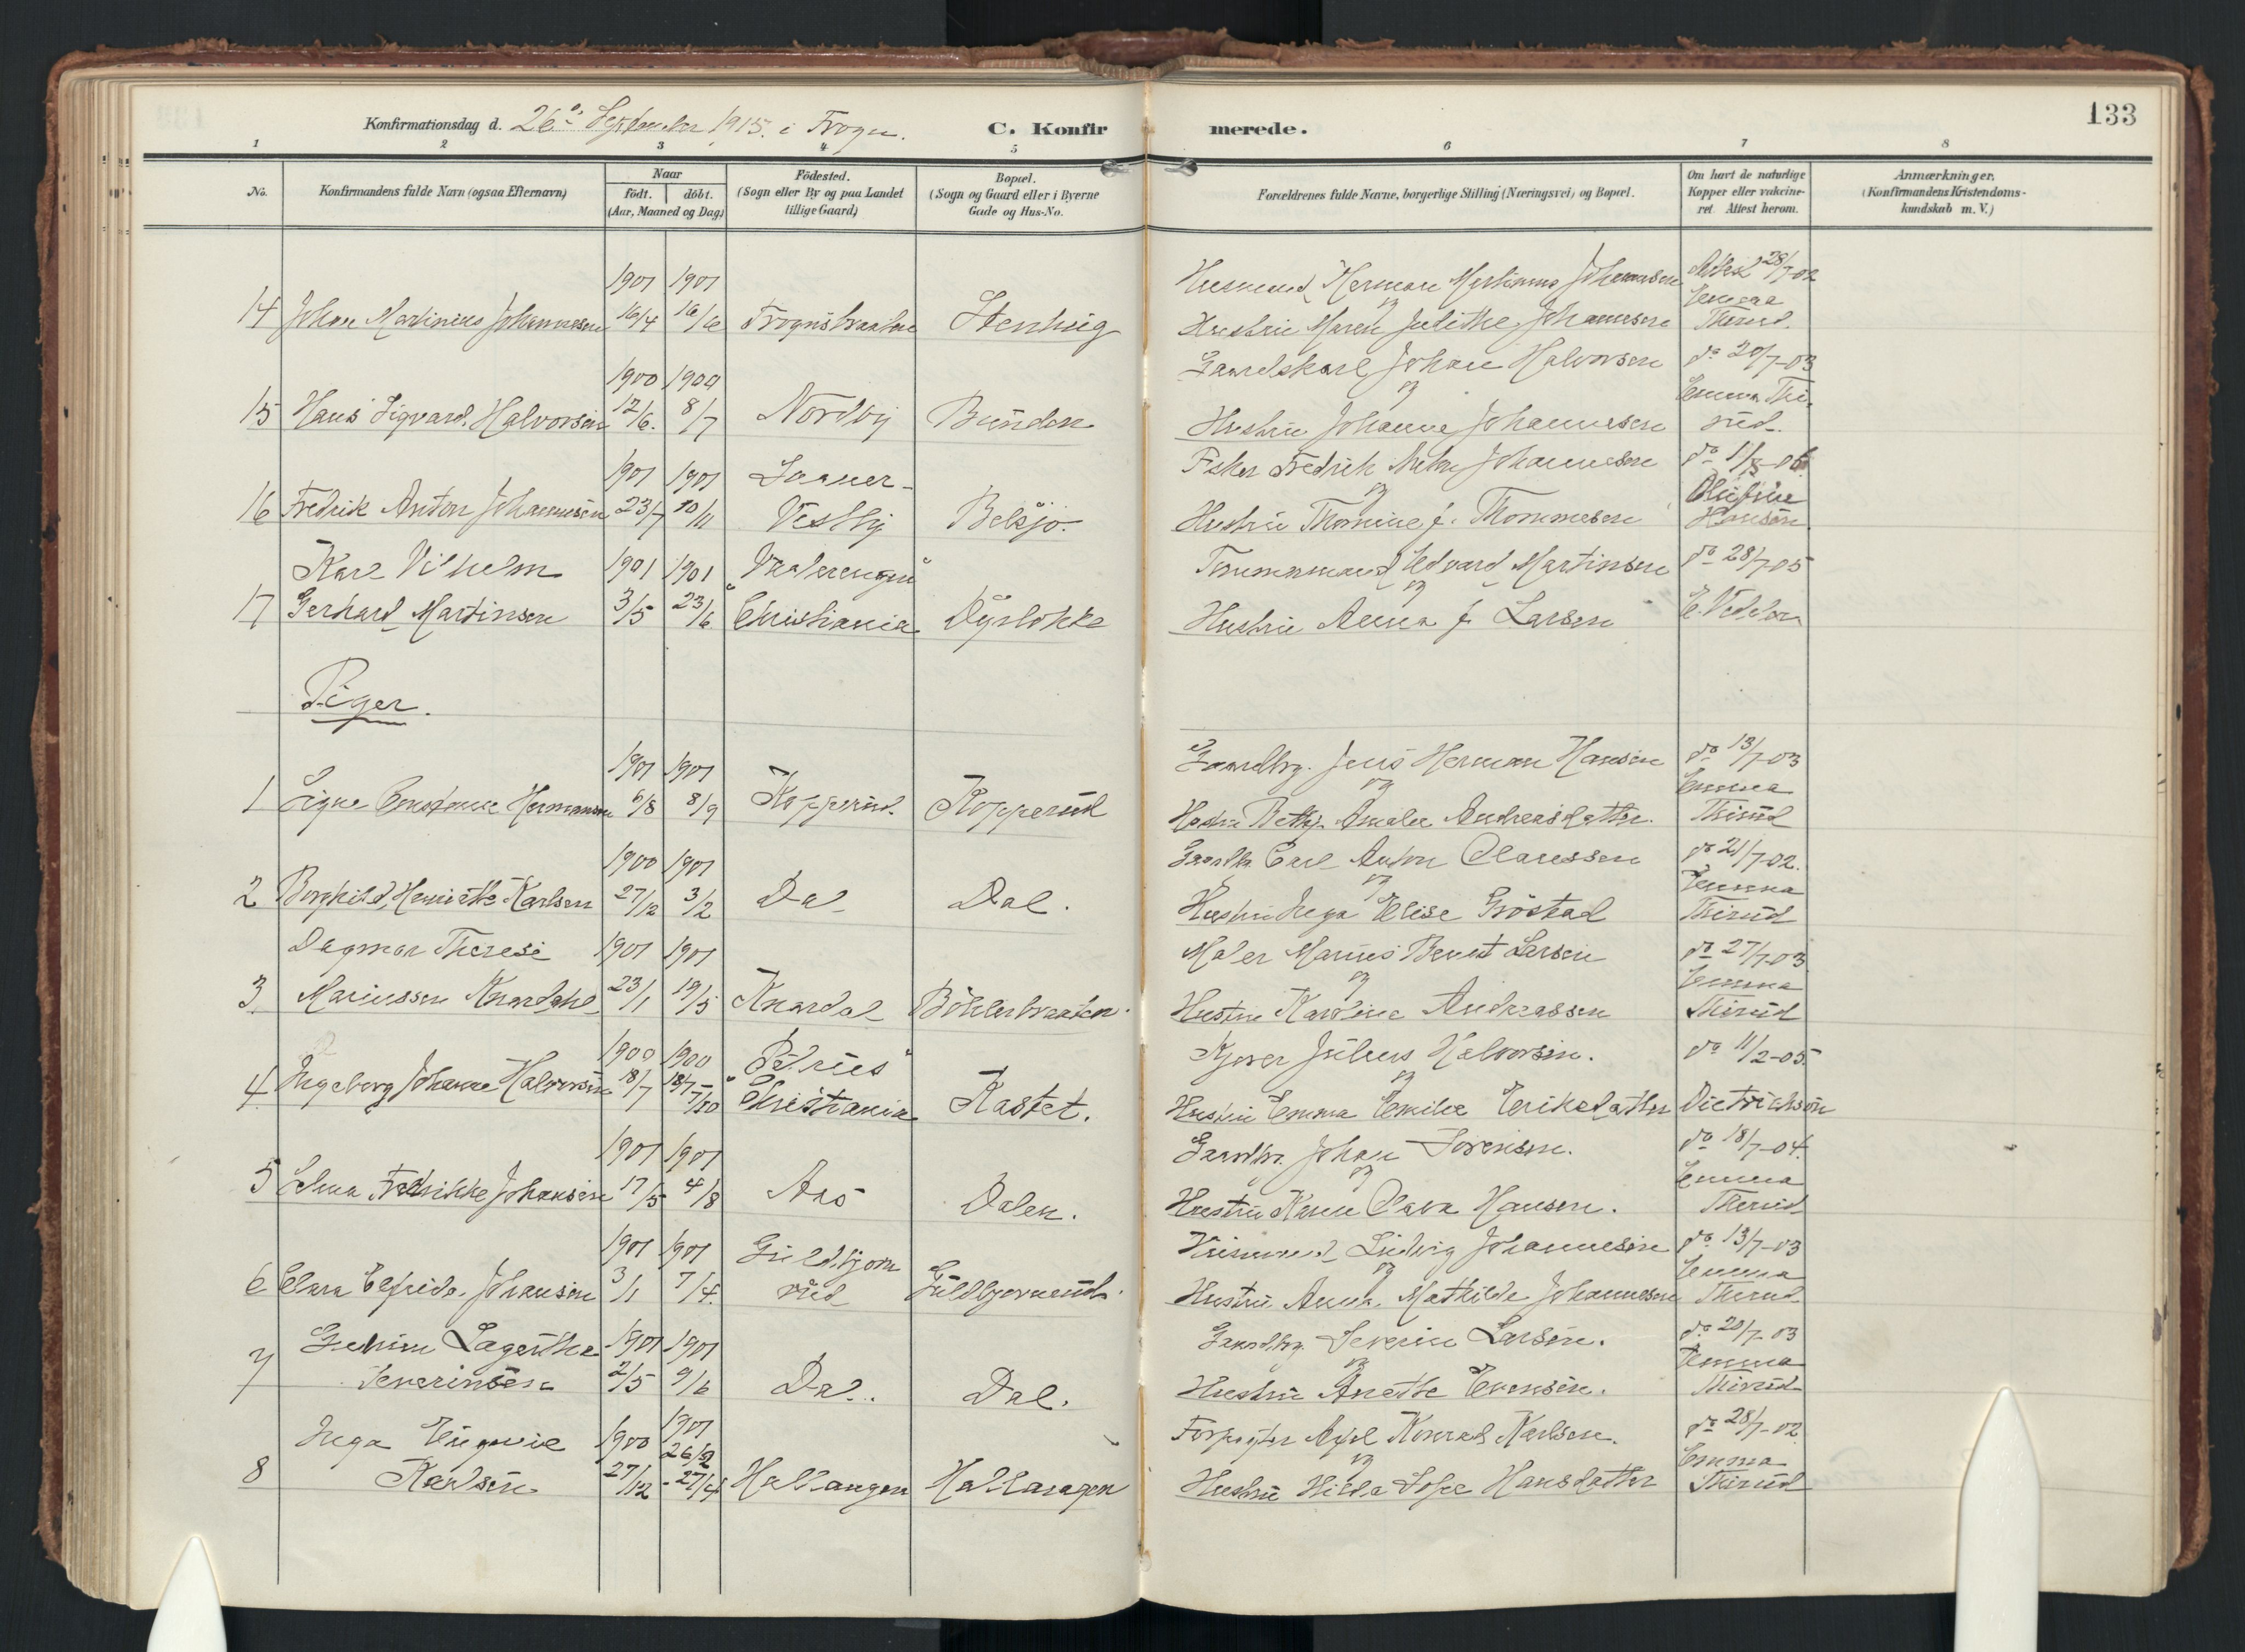 133
Konfirmationsdag d. 26de September 1915. i Frogn. C. Konfirmerede.
1 2 3 4 5 6 7 8
No.
Konfirmandens fulde Navn (ogsaa Efternavn)
Naar
födt. döbt.
(Aar, Maaned og Dag)
Födested.
(Sogn eller By og paa Landet
tillige Gaard)
Bopæl.
(Sogn og Gaard eller i Byerne
Gade og Hus-No.
Forældrenes fulde Navne, borgerlige Stilling (Næringsvei) og Bopæl.
Om havt de naturlige
Kopper eller vakcine-
ret. Attest herom.
Anmærkninger.
(Konfirmandens Kristendoms-
kundskab m. V.)
1901 1901 Husmand Herman Martinius Johannesen Attest 28/7-02
Emma
14 Johan Martinius Johannesen 16/4 16/6 Frognsbraaten Stenhug og Hustru Maren Judithe Johannesen Thirud.
1900 1900 Gaardskarl Johan Halvorsen do 20/7-03
Emma Thi-
15 Hans Sigvard Halvorsen 12/6. 8/7 Nordby Bunden og Hustru Johanne Johannesen rud.
1901 1901 Saaner- Fisker Fredrik Anton Johannesen do 11/8-06
Olufine
16 Fredrik Anton Johannesen 23/7 10/11 Vestby Belsjø. og Hustru Thomine f. Thommesen Hansen
Karl Vilhelm 1901 1901 Vaalerengen Tømmermand Edvard Martinsen do 28/7-05
17 Gerhard Martinsen 3/5 23/6 Christiania Dyrløkke og Hustru Anna f. Larsen E. Vedeler
Piger.
1901 1901 Gaardbr. Jens Herman Hansen do 13/7-03
Emma
1 Signe Constance Hermansen 6/8 8/9 Kopperud. Kopperud og Hustru Betty Amalie Andreasdatter. Thirud
1900 1901 Gaardbr. Carl Anton Olaussen do 21/7-02.
Emma
2 Borghild Henriette Karlsen 27/12 3/2 Dal Dal. og Hustru Inga Elise Grøstad Thirud
Dagmar Therese 1901 1901 Maler Marius Bernt Larsen do 27/7-03
Emma
3 Mariussen Knardahl 23/1 19/5 Knardal Bøhlerbraaten. og Hustru Karoline Andreassen Thirud
1900 1900 Paulus Kjører Julius Halvorsen. do 11/2-05.
4 Ingeborg Johanne Halvorsen 18/7 18/7-7/10 Christiania Kastet. og Hustru Emma Emilie Eriksdatter Dietrichson
1901 1901 Gaardbr. Johan Sørensen. do 18/7-04.
Emma
5 Selma Fredrikke Johansen 17/5 4/8 Aas Dalen. og Hustru Karen Olava Hansen. Thirud
1901 1901 Guldbjørn Husmand Ludvig Johannesen do 13/7-03
Emma
6 Clara Elfrida Johansen 3/1 7/4. rud Guldbjørnrud. og Hustru Anna Mathilde Johannesen Thirud
Gudrun Lagertha 1901 1901 Gaardbr. Severin Larsen. do 20/7-03
Emma
7 Severinsen 2/5 9/6 Dal. Dal. og Hustru Anette Evensen. Thirud
Inga Eugenie 1900 1901 Forpagter Axel Konrad Karlsen. do 28/7-02
26/2 Emma
8 Karlsen 27/12 -27/4 Hallangen Hallangen og Hustru Hilda Sofie Hansdatter Thirud